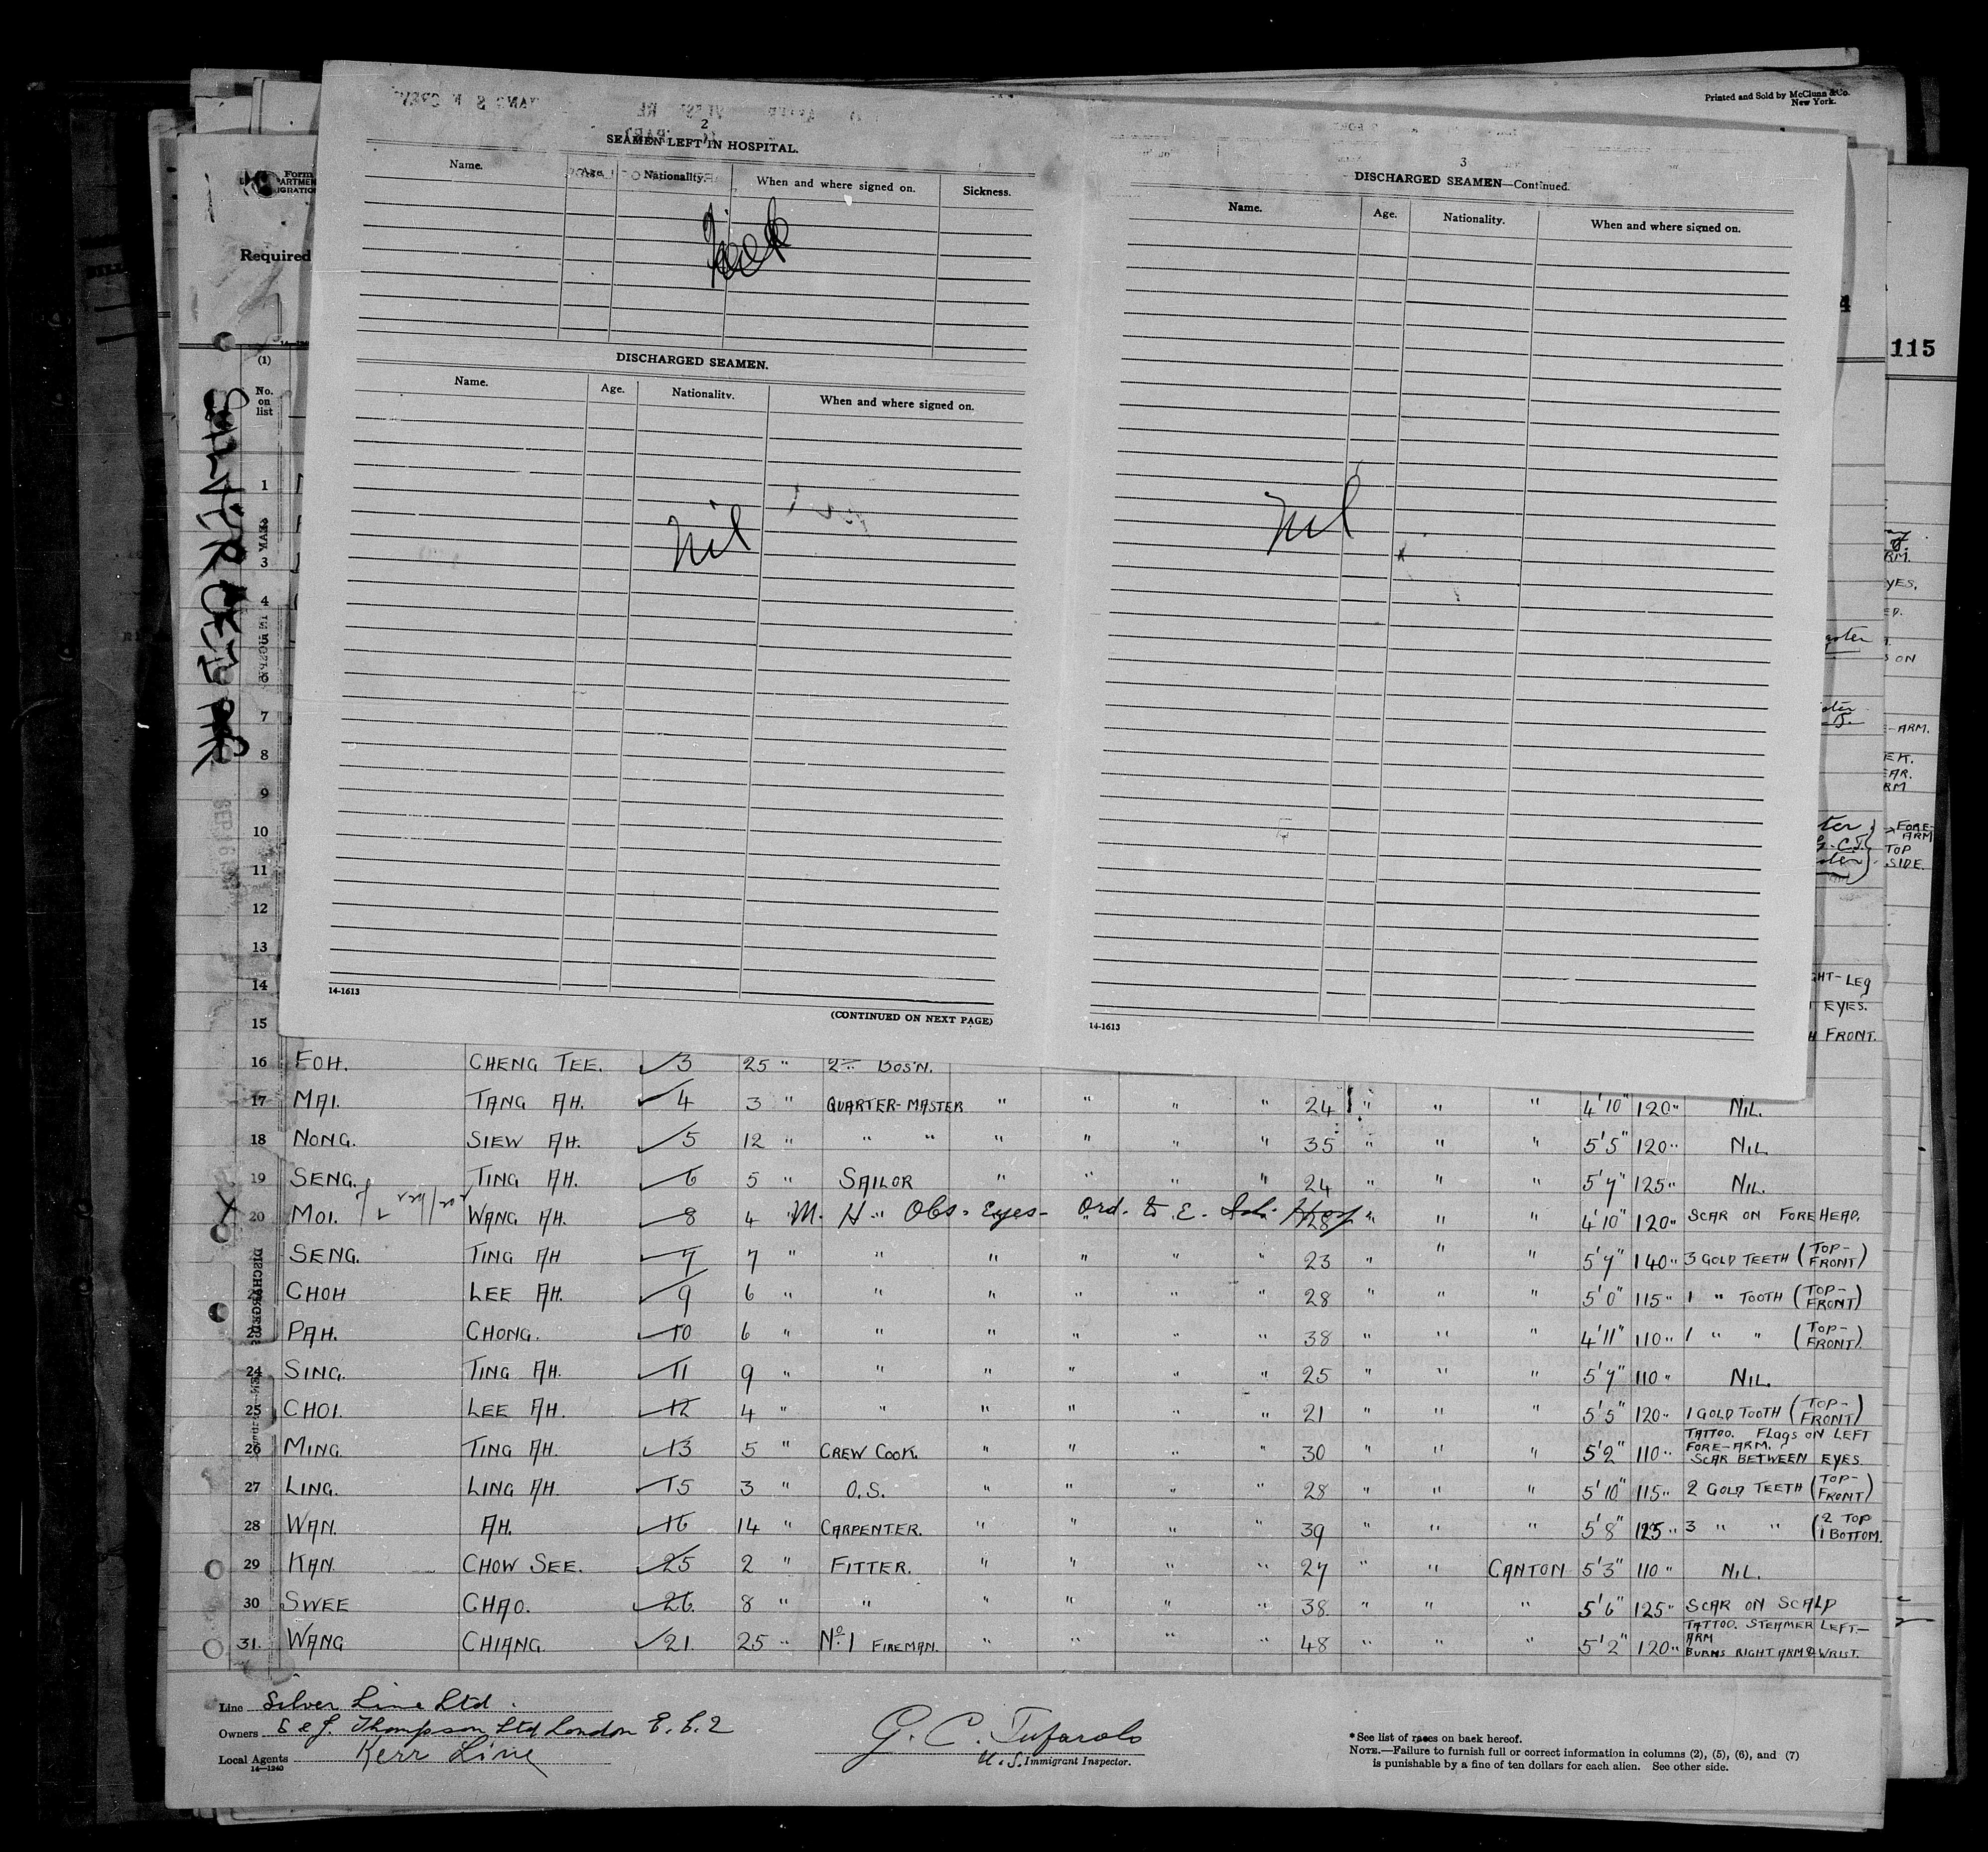 Printed and Sold by McClunn & Co.
New York.
2
SEAMEN LEFT IN HOSPITAL.
Name. Age. Nationality. When and where signed on. Sickness.
DISCHARGED SEAMEN.
Name. Age. Nationality. When and where signed on.
Nil
14-1613
(CONTINUED ON NEXT PAGE)
3
DISCHARGED SEAMEN—Continued.
Name. Age. Nationality. When and where signed on.
Nil
14-1613
115
Form
Required
(1)
No.
on
list
1
3
4
5
6
7
8
9
10
11
12
13
14
15
GHT-LEG
EYES.
FRONT.
16 FOH. CHENG TEE. 3 25 " 2ND BOSN.
17 MAI. TANG AH. 4 3 " QUARTER-MASTER " " " " 24 " " " 4'10" 120 " NIL.
18 NONG. SIEW AH. 5 12 " " " " " " " 35 " " " 5'5" 120 " NIL.
19 SENG. TING AH. 6 5 " SAILOR " " " " 24 " " " 5'7" 125 " NIL.
20 MOI. WANG AH. 8 4 " M. H. Obs. Eyes- Ord. to E. Isl. Hosp. 28 " " " 4'10" 120 " SCAR ON FOREHEAD.
SENG. TING AH 7 7 " " " " " " 23 " " " 5'7" 140 " 3 GOLD TEETH (TOP-FRONT)
CHOH LEE AH. 9 6 " " " " " " 28 " " " 5'0" 115 " 1 " TOOTH (TOP-FRONT)
23 PAH. CHONG. 10 6 " " " " " " 38 " " " 4'11" 110 " 1 " " (TOP-FRONT)
24 SING. TING AH. 11 9 " " " " " " 25 " " " 5'7" 110 " NIL.
25 CHOI. LEE AH. 12 4 " " " " " " 21 " " " 5'5" 120 " 1 GOLD TOOTH (TOP-FRONT)
26 MING. TING AH. 13 5 " CREW COOK. " " " " 30 " " " 5'2" 110 " TATTOO. FLAGS ON LEFT FORE-ARM. SCAR BETWEEN EYES.
27 LING. LING AH. 15 3 " O.S. " " " " 28 " " " 5'10" 115 " 2 GOLD TEETH (TOP-FRONT)
28 WAN. AH. 16 14 " CARPENTER. " " " " 39 " " " 5'8" 125 " 3 " " (2 TOP 1 BOTTOM.
29 KAN. CHOW SEE. 25 2 " FITTER. " " " " 27 " " CANTON 5'3" 110 " NIL.
30 SWEE CHAO. 26 8 " " " " " " 38 " " " 5'6" 125 " SCAR ON SCALP
31. WANG CHIANG. 21 25 " No. 1 FIREMAN. " " " " 48 " " " 5'2" 120 " TATTOO. STEAMER LEFT-ARM BURNS RIGHT ARM & WRIST.
Line Silver Line Ltd.
Owners S & J. Thompson Ltd London E.C.2
Local Agents Kerr Line
14—1240
G. C. Tufarolo
U.S. Immigrant Inspector.
*See list of races on back hereof.
NOTE.—Failure to furnish full or correct information in columns (2), (5), (6), and (7)
is punishable by a fine of ten dollars for each alien. See other side.